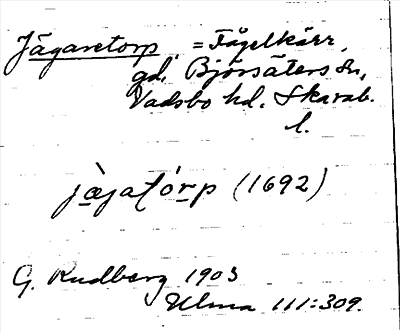 Jägaretorp, = Fågelkärr,
gd. Björsäters sn,
Vadsbo hd. Skarab.
l.
jàgatorp (1692)
G. Rudberg 1903
Ulma 111:309.